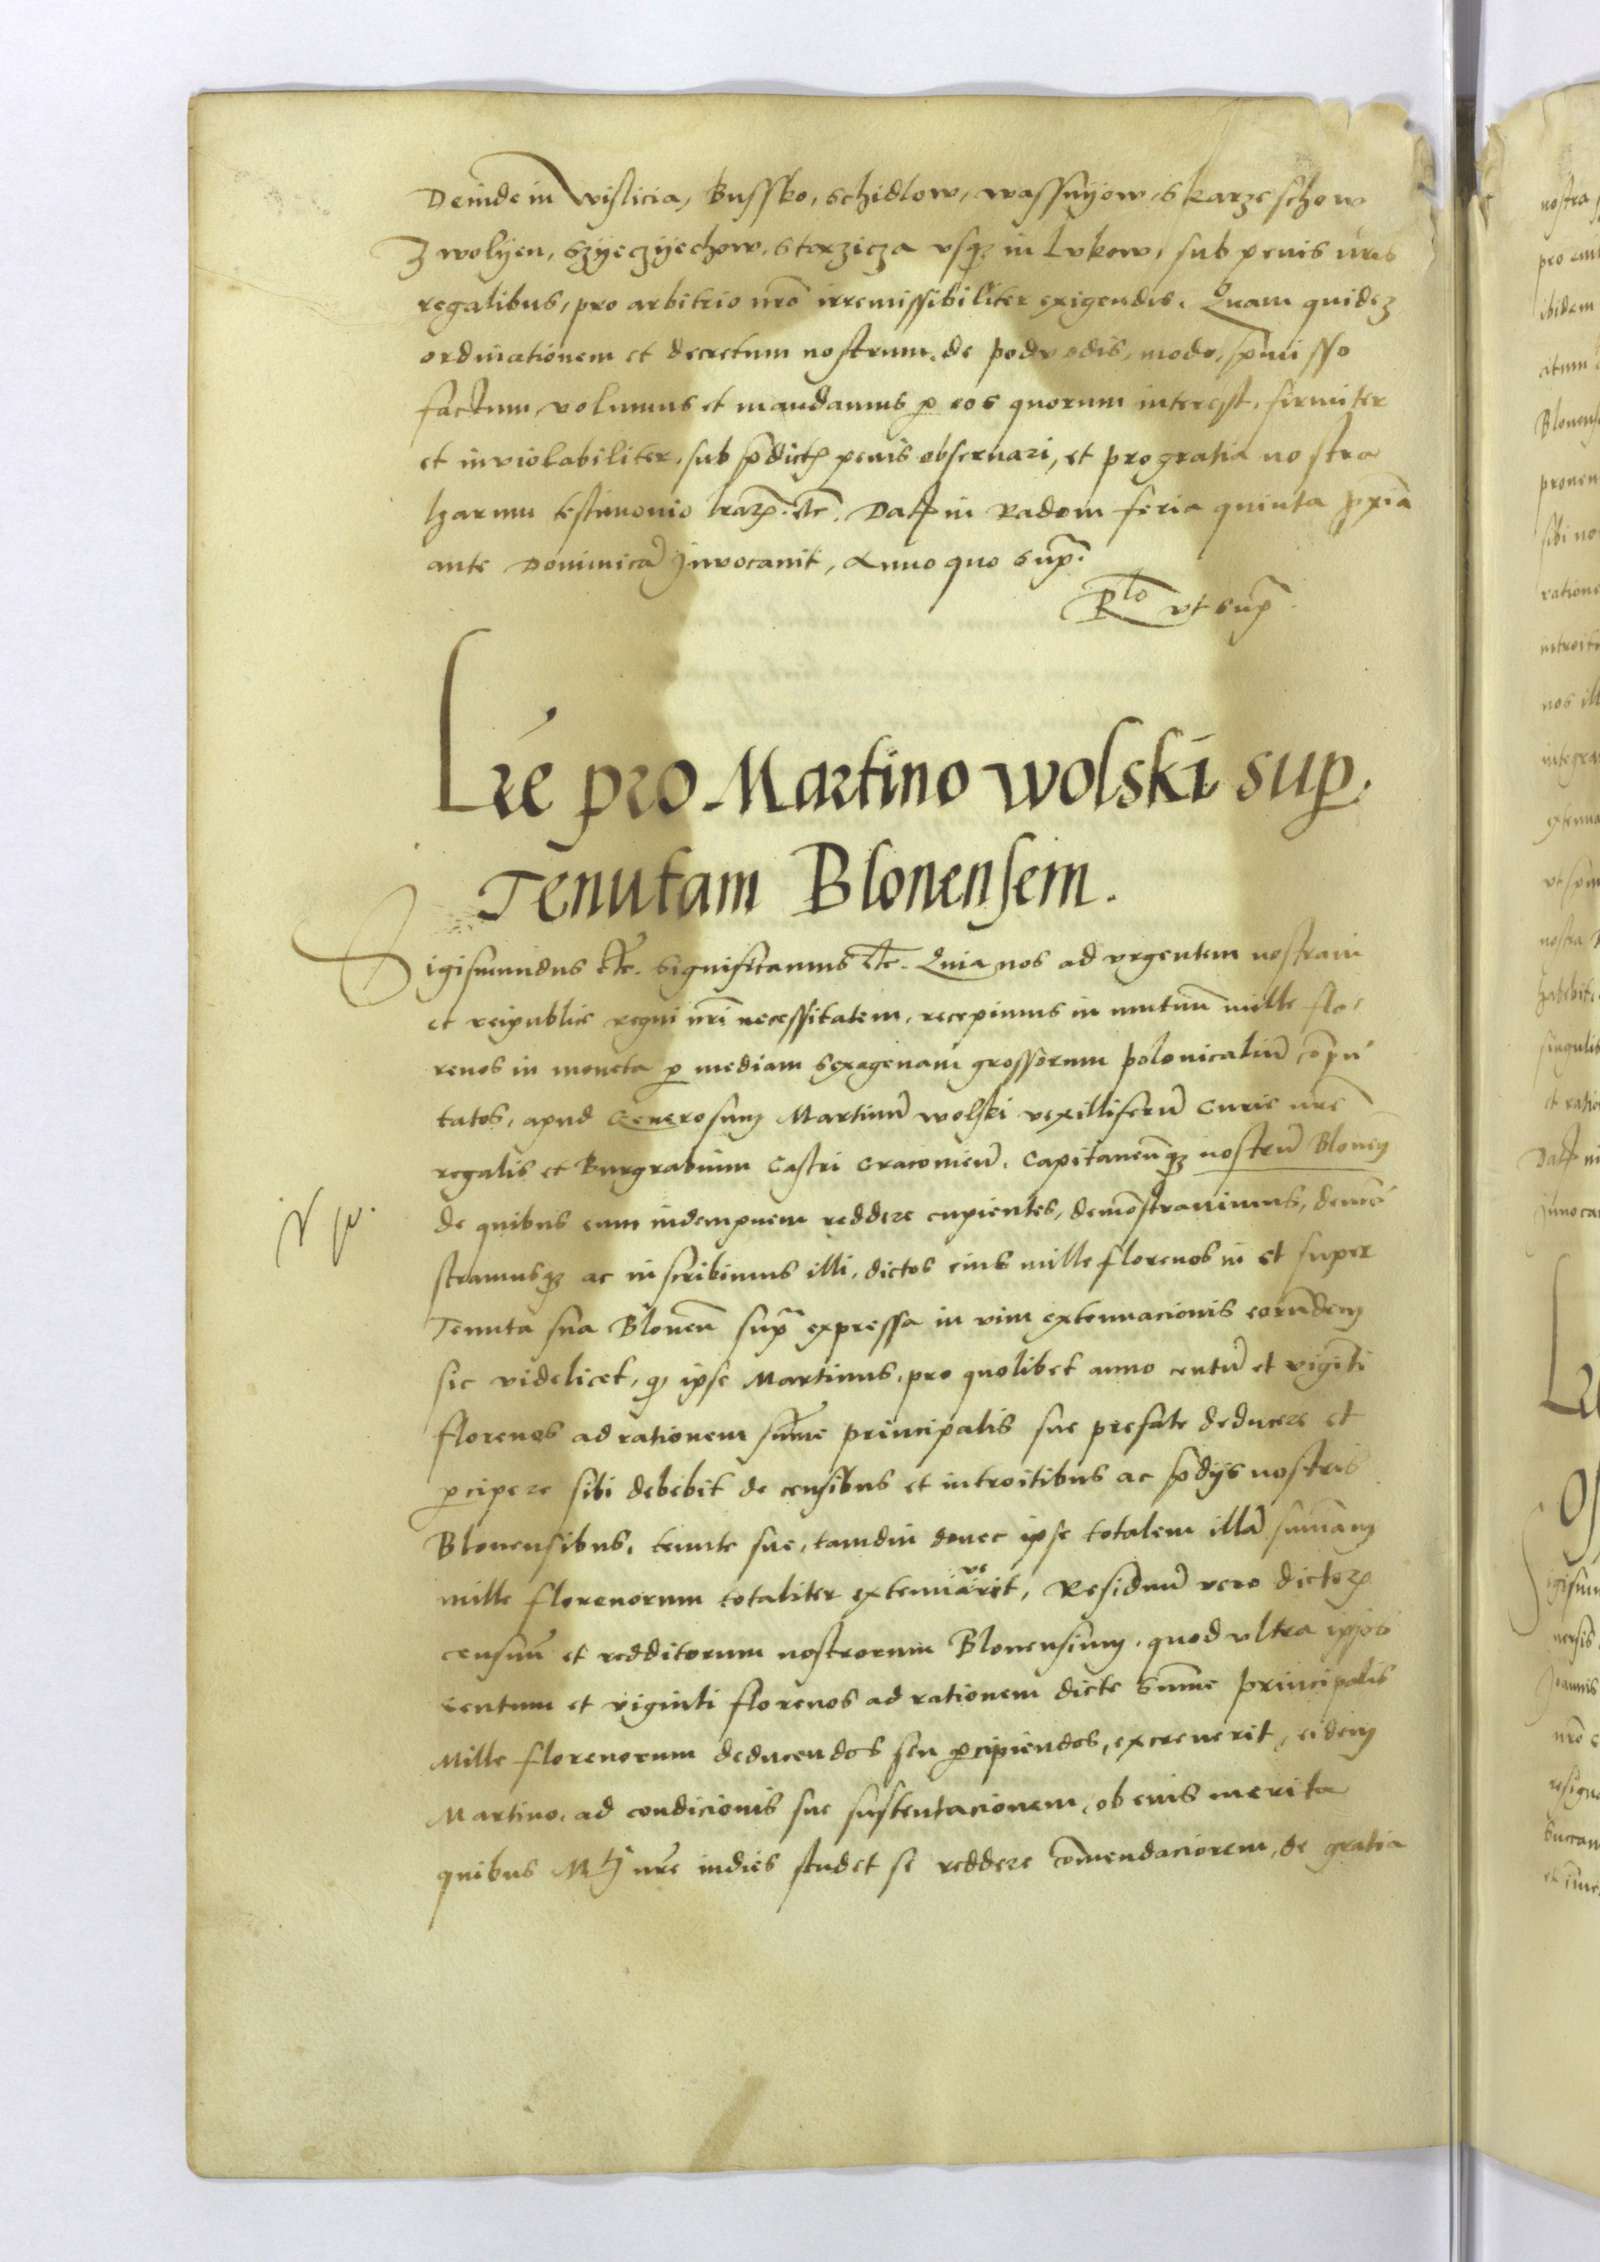 Deinde in Wislicia, Bussko, Schidlow, Wassnyow, Skarzeschow
Zwolyen, Szyeczyechow, Sterzicza vsq3 in Lukow, sub penis nris
regalibus, pro arbitrio nro irremissibiliter exigendis. Quam quidez
ordinationem et decretum nostrum, de podvodis, modo, pmisso
factum, volumus et mandamus p eos quorum interest, firmiter
et inviolabiliter, sub pdict penis obseruari, et pro gratia nostra
harum testimonio lrarz. etc. Dat in Radom feria quinta pxia
ante Dominica Invocauit, Anno quo sup.
Rlo vt sup.
Lre pro Martino Wolski sup.
Tenutam Blonensem.
Sigismundus etc. Significamus etc. Quia nos ad vrgentem nostram
et reipublice regni nri necessitatem, recepimus in mutuu mille flo
renos in moneta p mediam sexagenam grossorum polonicaliu copu
tatos, apud Generosum Martinu Wolski vexilliferu Curie nre
regalis et Burgrabium Castri Cracovien, Capitaneuq3 nostru Blonen
de quibus eum indempnem reddere cupientes, demostrauimus, demo
stramusq3 ac inscribimus illi, dictos eius mille florenos in et super
Tenuta sua Blonen sup expressa in vim extenuacionis eorundem
sic videlicet, q ipse Martinus, pro quolibet anno centu et viginti
florenos ad rationem sume principalis sue prefate deducere et
pcipere sibi debebit de censibus et introitibus ac pdijs nostris
Blonensibus, tenute sue, tamdiu donec ipse totalem illa sumam
mille florenorum totaliter extenuarit, Residuu vero dictorz
censuu et redditorum nostrorum Blonensium, quod vltra ipsos
centum et viginti florenos ad rationem dicte sume principalis
Mille florenorum deducendos seu pcipiendos, excreuerit, eidem
Martino, ad condicionis sue sustentacionem, ob eius merita
quibus Mti nre indies studet se reddere comendaciorem, de gratia